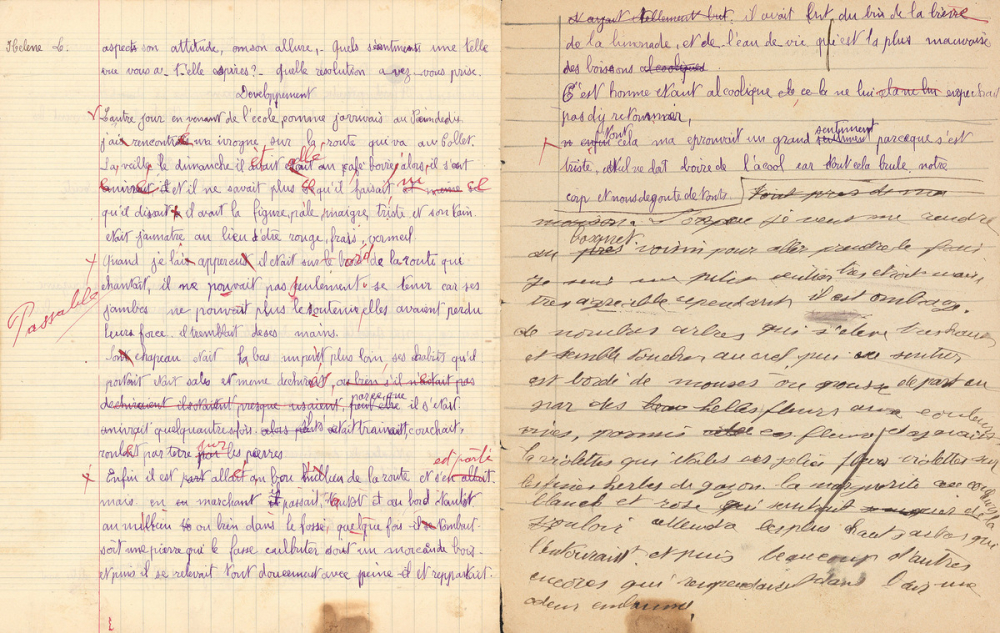 Helene L.
aspects son attitude, on son allure,. Quels sentiments une telle
vue vous a-t-elle inspires?. Quelle résolution avez vous prise.
Developpement
L'autre jour en venant de l'école, comme j'arrivais au
j'ai rencontré un ivrogne, sur la route qui va au Collet.
La veille le dimanche il était allé au café boire, alors il s'est
et il ne savait plus ce qu'il faisait, ni
qu'il disait il avait la figure, pâle, maigre, triste et son tain
etait jaunatre au lieu d'être rouge, frais, vermeil.
Quand je l'ai apperçus il etait sur le bord de la route qui
chantait, il ne pouvait pas seulement se tenir car ses
jambes ne pouvait plus le soutenir, elles avaient perdu
leurs force il tremblait de ses mains.
Son chapeau etait là, bas un petit plus loin, ses habits qu'il
portait etait sales et meme dechirés, ou bien s'il n'étaient pas
dechiraient ils étaient presque usaient, parce que il s'était
enivrait quelquautres fois il s'était trainait, couchait,
roulait par terre sur les pierres
Passable
Enfin il est allait au bon milieu de la route et s'en est parti
mais en marchant il passait, tantot et au bord tantot
au milieu ou bien dans le fossé, quelque fois il tombait
soit une pierre que le fasse culbuter soit un morceau de bois.
et puis il se relevait tout doucement avec peine il et reppartait.
ayant tellement but. il avait but du bin de la bierre
de la limonade, et de l'eau de vie qui est la plus mauvaise
des boissons alcooliques.
C'est homme etant alcoolique
pas d'y retourner,
tout cela ma eprouvait un grand sentiment parceque c'est
triste, il ne dat boire de l'acool car tout cela brule notre
corp et nous degoute de touts. Tout près de ma
maison. je veut me rendre
bosquet
au près voisin pour aller prendre le frais
Je suis un petit sentier tres etroit mais
tres agreible cependant il est ombragé
de nombres arbres qui s'elève
et semble toucher au ciel, puis ce sentier
est bordé de mousses ou pousse de part en
par des belles fleurs aux couleurs
vives, parmis ces fleurs
la violettes qui etales ses jolies fleurs violettes sur
les fines herbes de gazon. la marguerite au coeur
blanc et rose qui
vouloir attendre les plus haut arbres qui
l'entourait et puis beaucoup d'autres
encores qui rependait dans l'air une
odeur embaumé,